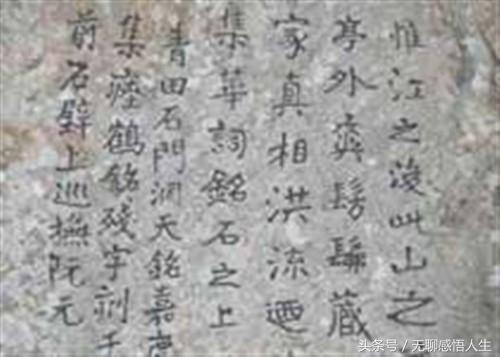 惟江之浚此山之
亭外爽髣髴藏
家真相洪流迺
集華詞銘石之上
青田石門洞天銘嘉慶
集瘞鶴銘殘字刻于
前石壁上巡撫阮元
头条号 / 无聊感悟人生